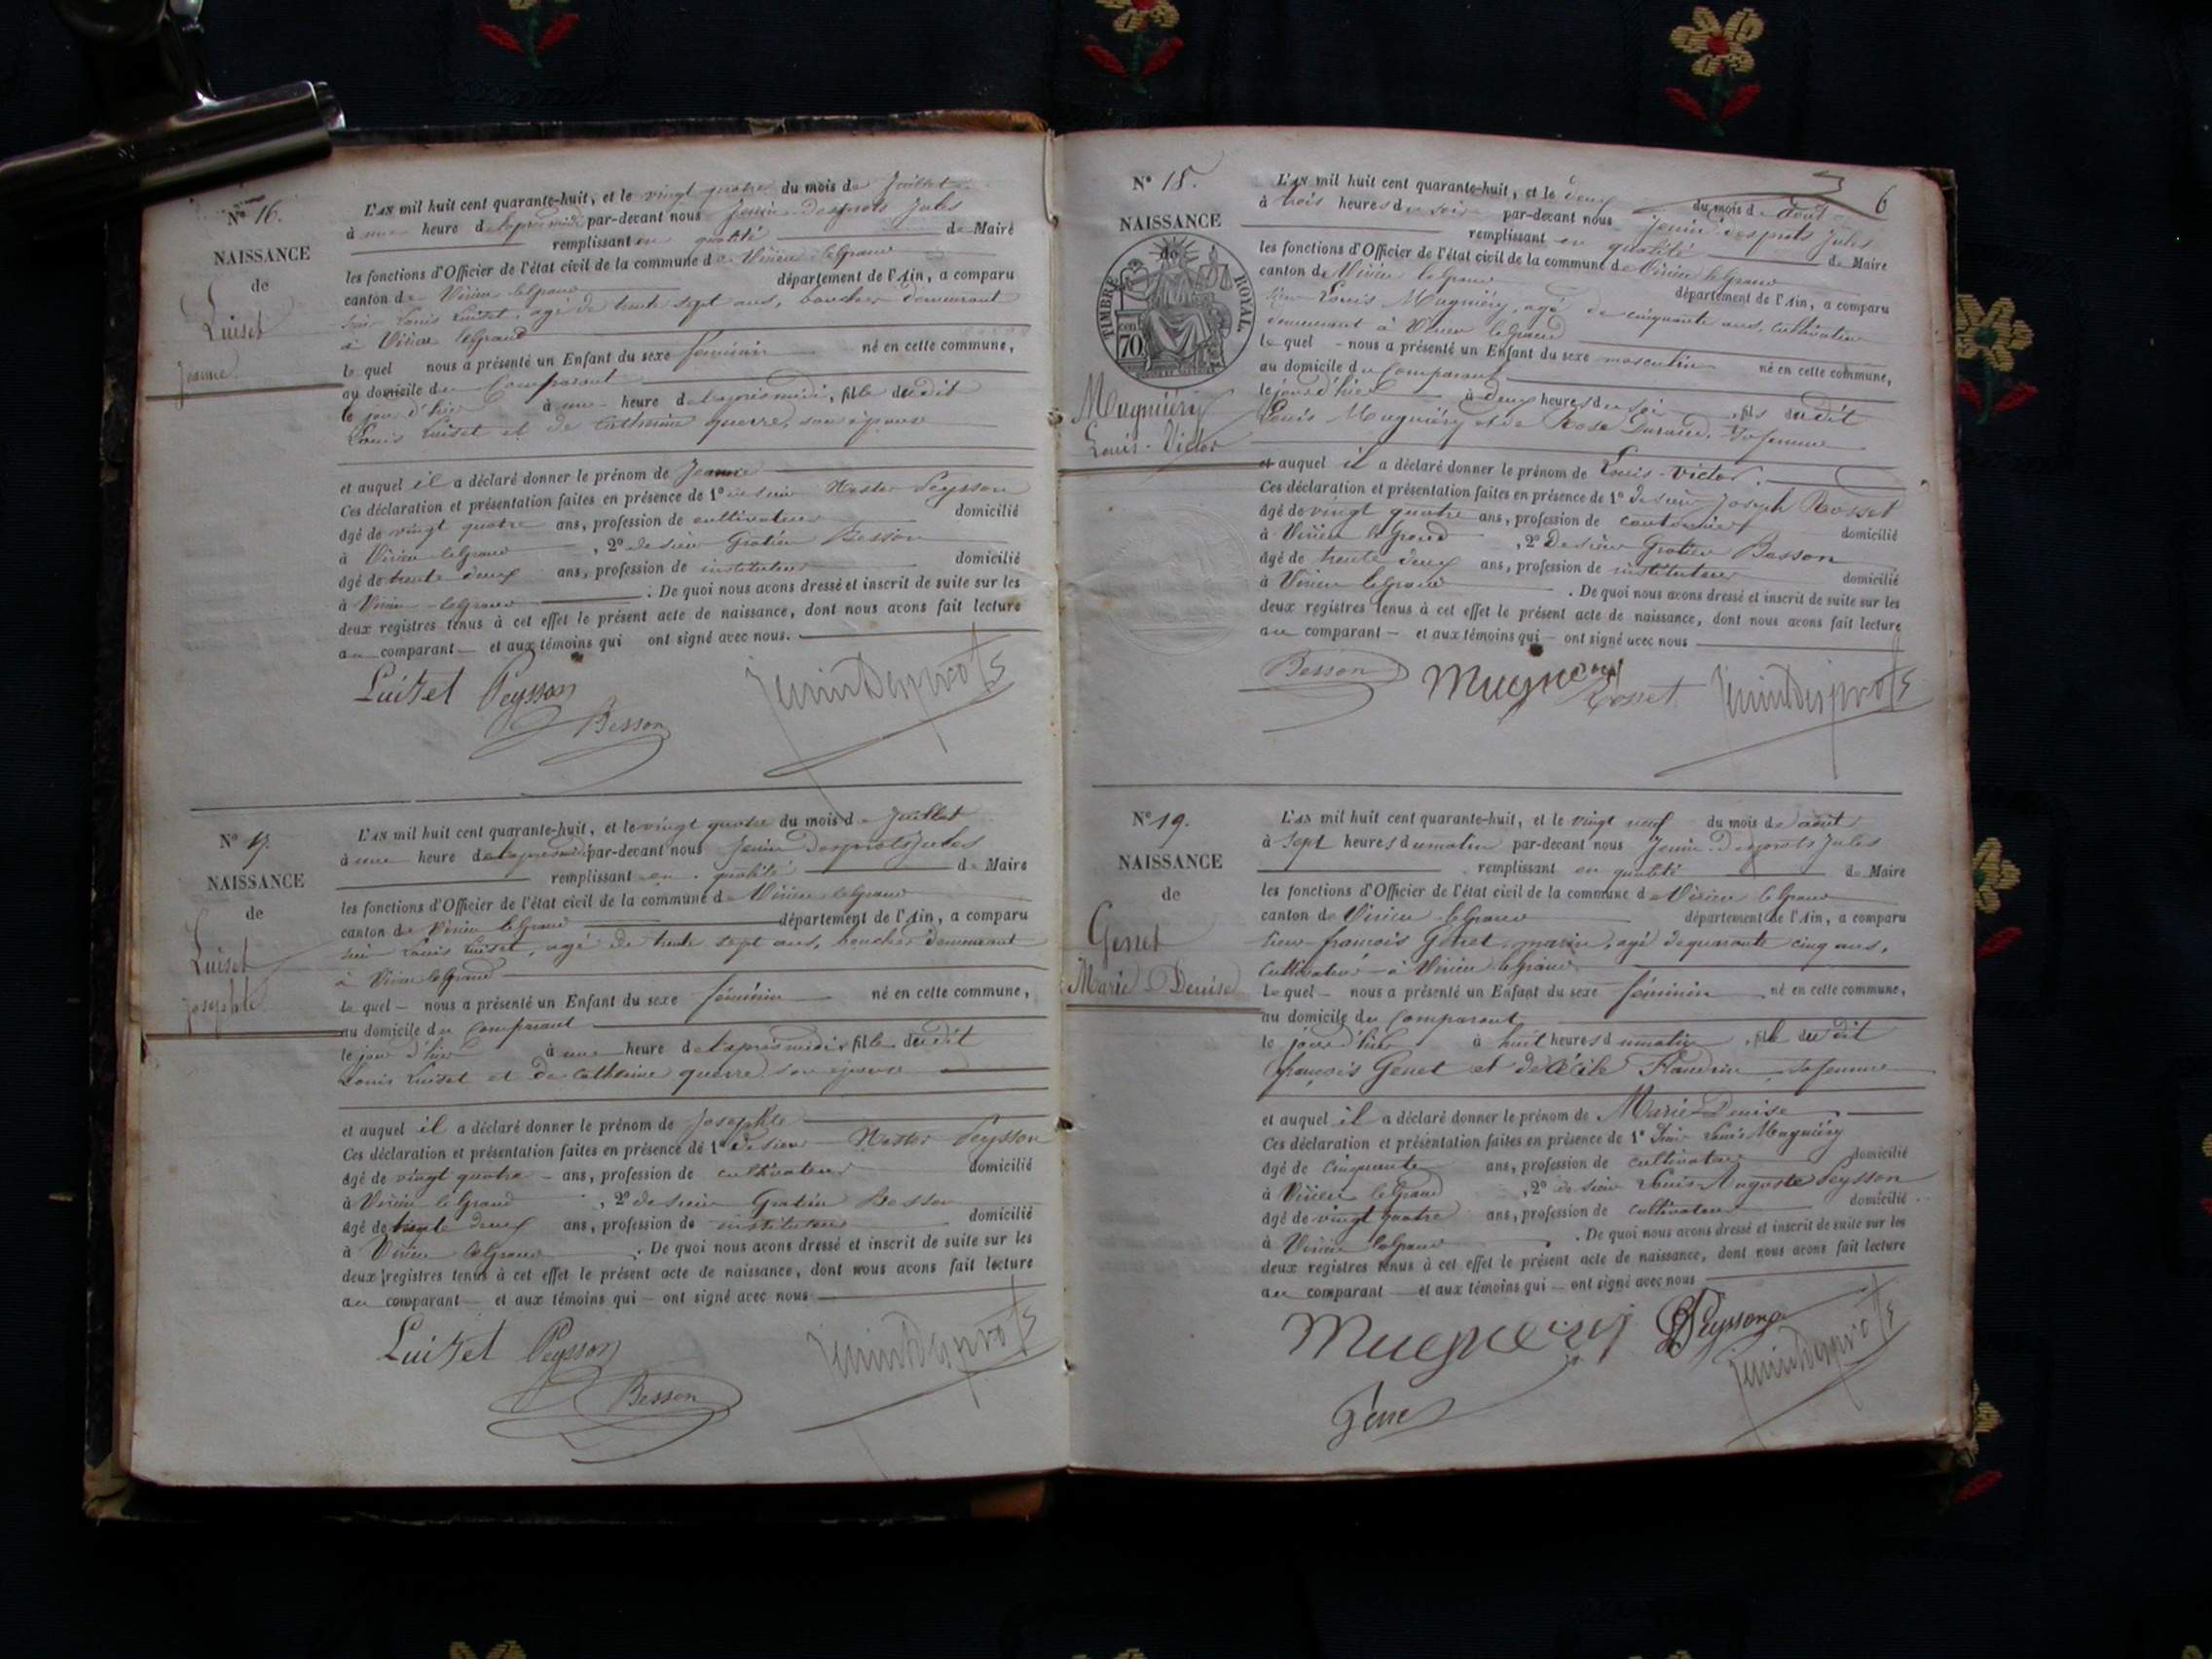 N° 16.
NAISSANCE
de
Luiset
Jeanne
L'AN mil huit cent quarante-huit, et le vingt quatre du mois de Juillet
à une heure de l'après midi par-devant nous Jenin Desprots Jules
remplissant en qualité de Maire
les fonctions d'Officier de l'état civil de la commune de Virieu le Grand
canton de Virieu le Grand département de l'Ain, a comparu
sieur Louis Luiset, agé de trente sept ans, boucher demeurant
à Virieu le Grand
le quel nous a présenté un Enfant du sexe féminin né en cette commune,
au domicile du Comparant
le jour d'hier à une heure de l'après midi, fille dudit
Louis Luiset et de Catherine guerre, son épouse
et auquel il a déclaré donner le prénom de Jeanne
Ces déclaration et présentation faites en présence de 1° de sieur Peysson
âgé de vingt quatre ans, profession de cultivateur domicilié
à Virieu le Grand, 2° de sieur Gratien Besson
âgé de trente deux ans, profession de instituteur domicilié
à Virieu le Grand. De quoi nous avons dressé et inscrit de suite sur les
deux registres tenus à cet effet le présent acte de naissance, dont nous avons fait lecture
au comparant et aux témoins qui ont signé avec nous.
Luizet Peysson JeninDesprots
Besson
N° 17.
NAISSANCE
de
Luiset
Josephte
L'AN mil huit cent quarante-huit, et le vingt quatre du mois de Juillet
à une heure de l'après midi par-devant nous Jenin Desprots Jules
remplissant en qualité de Maire
les fonctions d'Officier de l'état civil de la commune de Virieu le Grand
canton de Virieu le Grand département de l'Ain, a comparu
sieur Louis Luiset, agé de trente sept ans, boucher demeurant
à Virieu le Grand
le quel nous a présenté un Enfant du sexe féminin né en cette commune,
au domicile du Comparant
le jour d'hier à une heure de l'après midi, fille dudit
Louis Luiset et de Catherine guerre son épouse
et auquel il a déclaré donner le prénom de Josephte
Ces déclaration et présentation faites en présence de 1° de sieur Peysson
âgé de vingt quatre ans, profession de cultivateur domicilié
à Virieu le Grand, 2° de sieur Gratien Besson
âgé de trente deux ans, profession de instituteur domicilié
à Virieu le Grand. De quoi nous avons dressé et inscrit de suite sur les
deux registres tenus à cet effet le présent acte de naissance, dont nous avons fait lecture
au comparant et aux témoins qui ont signé avec nous
Luizet Peysson JeninDesprots
Besson
6
N° 18.
NAISSANCE
de
TIMBRE ROYAL
cen
70
Mugniéry
Louis-Victor
L'AN mil huit cent quarante-huit, et le deux du mois d'août
à trois heures du soir par-devant nous Jenin Desprots Jules
remplissant en qualité de Maire
les fonctions d'Officier de l'état civil de la commune de Virieu le Grand
canton de Virieu le Grand département de l'Ain, a comparu
sieur Louis Mugniéry, agé de cinquante ans, cultivateur
demeurant à Virieu le Grand
le quel nous a présenté un Enfant du sexe masculin né en cette commune,
au domicile du Comparant
le jour d'hier à deux heures du soir, fils dudit
Louis Mugniéry et de Rose Durand, sa femme
et auquel il a déclaré donner le prénom de Louis-Victor.
Ces déclaration et présentation faites en présence de 1° de sieur Joseph Rosset
âgé de vingt quatre ans, profession de cantonnier domicilié
à Virieu le Grand, 2° de sieur Gratien Besson
âgé de trente deux ans, profession de instituteur domicilié
à Virieu le Grand. De quoi nous avons dressé et inscrit de suite sur les
deux registres tenus à cet effet le présent acte de naissance, dont nous avons fait lecture
au comparant et aux témoins qui ont signé avec nous
Besson Mugnery Rosset JeninDesprots
N° 19.
NAISSANCE
de
Genet
Marie Denise
L'AN mil huit cent quarante-huit, et le vingt neuf du mois d'août
à sept heures du matin par-devant nous Jenin Desprots Jules
remplissant en qualité de Maire
les fonctions d'Officier de l'état civil de la commune de Virieu le Grand
canton de Virieu le Grand département de l'Ain, a comparu
sieur françois Genet marin, agé de quarante cinq ans,
cultivateur à Virieu le Grand
le quel nous a présenté un Enfant du sexe féminin né en cette commune,
au domicile du Comparant
le jour d'hier à huit heures du matin, fille dudit
françois Genet et de Cécile Flandrin sa femme
et auquel il a déclaré donner le prénom de Marie Denise
Ces déclaration et présentation faites en présence de 1° sieur Louis Mugniéry
âgé de cinquante ans, profession de cultivateur domicilié
à Virieu le Grand, 2° de sieur Louis Auguste Peysson
âgé de vingt quatre ans, profession de cultivateur domicilié
à Virieu le Grand. De quoi nous avons dressé et inscrit de suite sur les
deux registres tenus à cet effet le présent acte de naissance, dont nous avons fait lecture
au comparant et aux témoins qui ont signé avec nous
Mugnery Peysson JeninDesprots
Genet